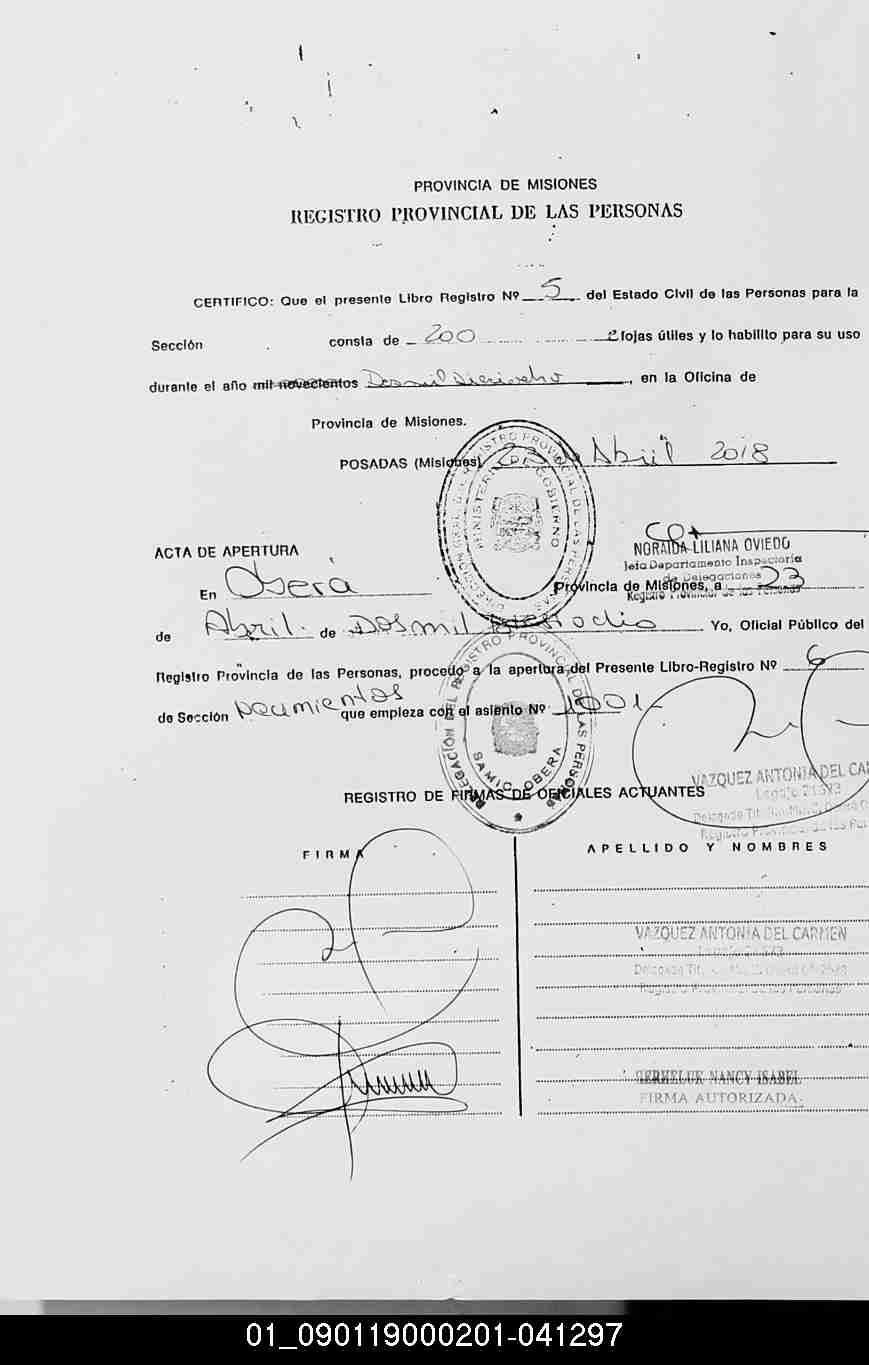 PROVINCIA DE MISIONES
REGISTRO PROVINCIAL DE LAS PERSONAS
CERTIFICO: Que el presente Libro Registro Nº 5 del Estado Civil de las Personas para la
Sección consta de 200 fojas útiles y lo habilito para su uso
durante el año mil novecientos Dosmil Dieciocho, en la Oficina de
Provincia de Misiones.
POSADAS (Misiones) 23 de Abril 2018
MINISTERIO DE GOBIERNO
NORAIDA LILIANA OVIEDO
Jefa Departamento Inspectoria
de Delegaciones
Registro Provincial de las Personas
ACTA DE APERTURA
En Oberá Provincia de Misiones, a 23
de Abril de Dosmil Dieciocho Yo, Oficial Público del
Registro Provincia de las Personas, procedo a la apertura del Presente Libro-Registro Nº 6
de Sección que empieza con el asiento Nº 1001
DELEGACIÓN DEL REGISTRO PROVINCIAL DE LAS PERSONAS
SAMIC OBERA
VAZQUEZ ANTONIA DEL CAR
REGISTRO DE FIRMAS DE OFICIALES ACTUANTES
FIRMA
APELLIDO Y NOMBRES
VAZQUEZ ANTONIA DEL CARMEN
NANCY ISABEL
FIRMA AUTORIZADA
01_090119000201-041297